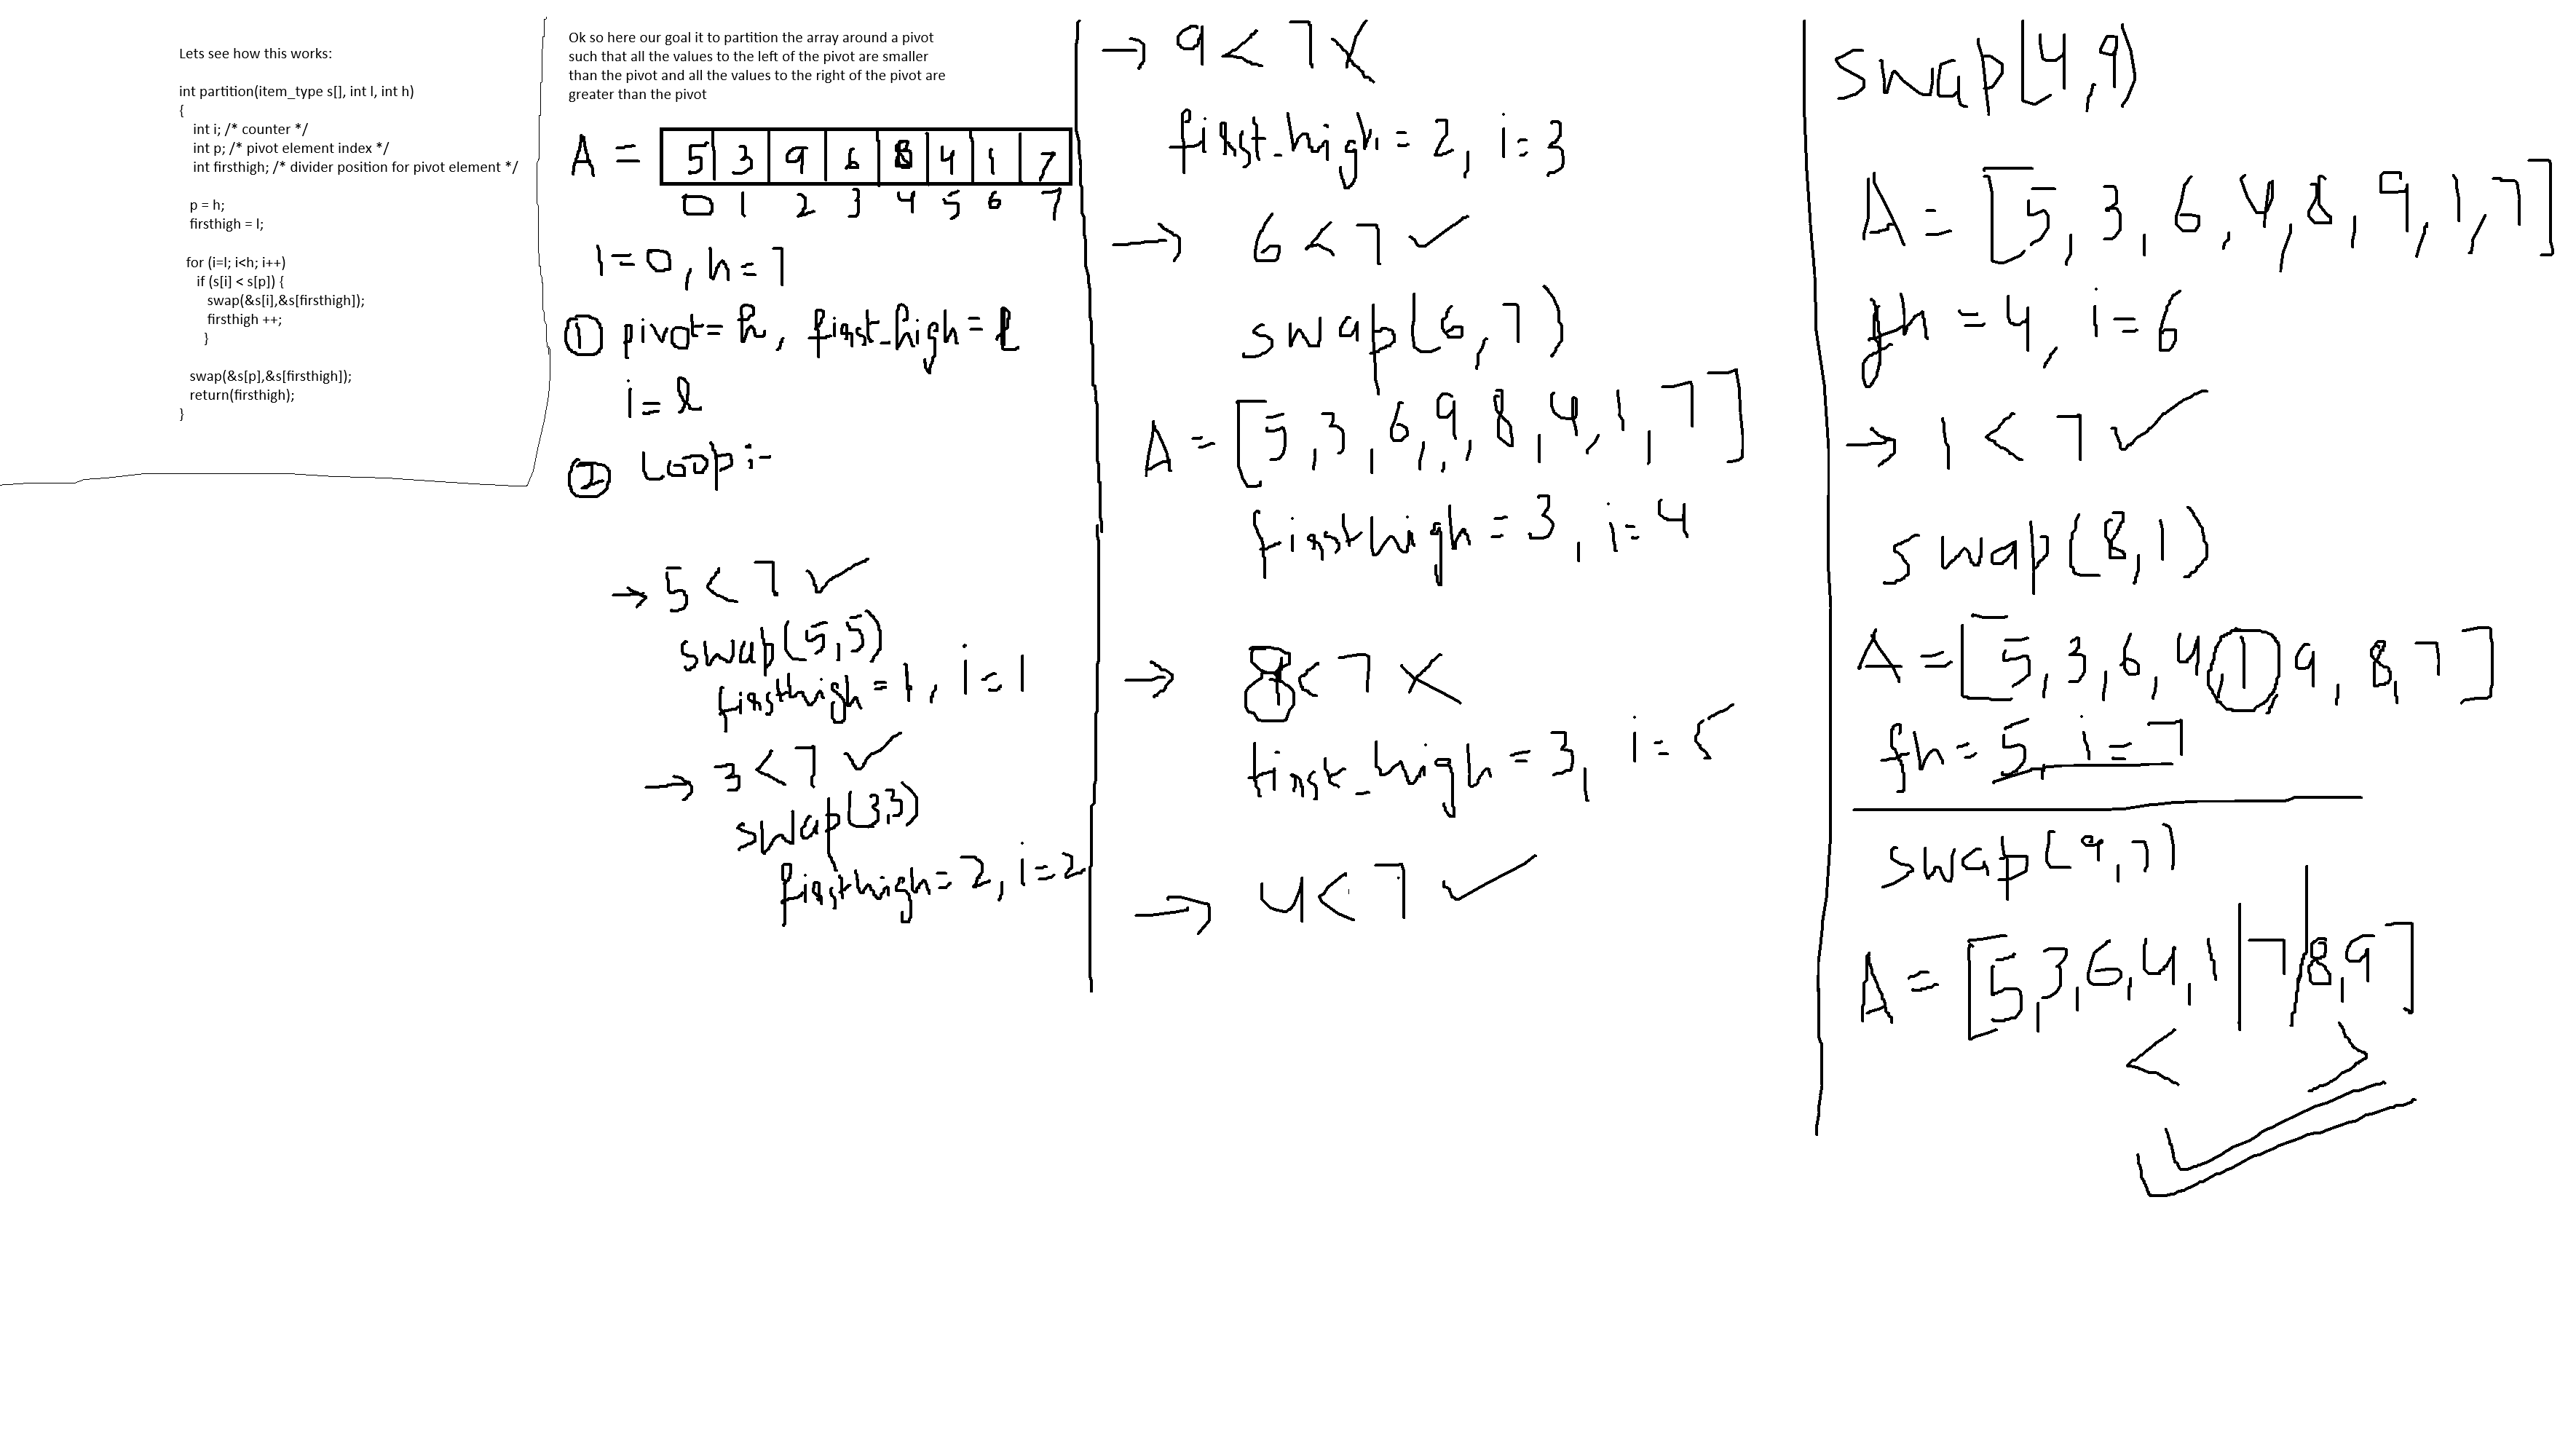 Lets see how this works:
int partition(item_type s[], int l, int h)
{
int i; /* counter */
int p; /* pivot element index */
int firsthigh; /* divider position for pivot element */
p = h;
firsthigh = l;
for (i=l; i<h; i++)
if (s[i] < s[p]) {
swap(&s[i],&s[firsthigh]);
firsthigh ++;
}
swap(&s[p],&s[firsthigh]);
return(firsthigh);
}
Ok so here our goal it to partition the array around a pivot
such that all the values to the left of the pivot are smaller
than the pivot and all the values to the right of the pivot are
greater than the pivot
A = 5 3 9 6 8 4 1 7
0 1 2 3 4 5 6 7
l=0, h=7
① pivot= h, first_high = l
i= l
② Loop:-
→ 5 < 7 ✓
swap(5,5)
firsthigh = 1, i=1
→ 3 < 7 ✓
swap(3,3)
firsthigh= 2, i=2
→ 9 < 7 X
first_high = 2, i=3
→ 6 < 7 ✓
swap(6,7)
A = [5,3,6,9,8,4,1,7]
firsthigh = 3, i=4
→ 8 < 7 X
first_high = 3, i=5
→ 4 < 7 ✓
swap(4,9)
A = [5,3,6,4,8,9,1,7]
fh = 4, i=6
→ 1 < 7 ✓
swap(8,1)
A = [5,3,6,4,1,9,8,7]
fh= 5, i=7
swap(9,7)
A = [5,3,6,4,1|7|8,9]
< >